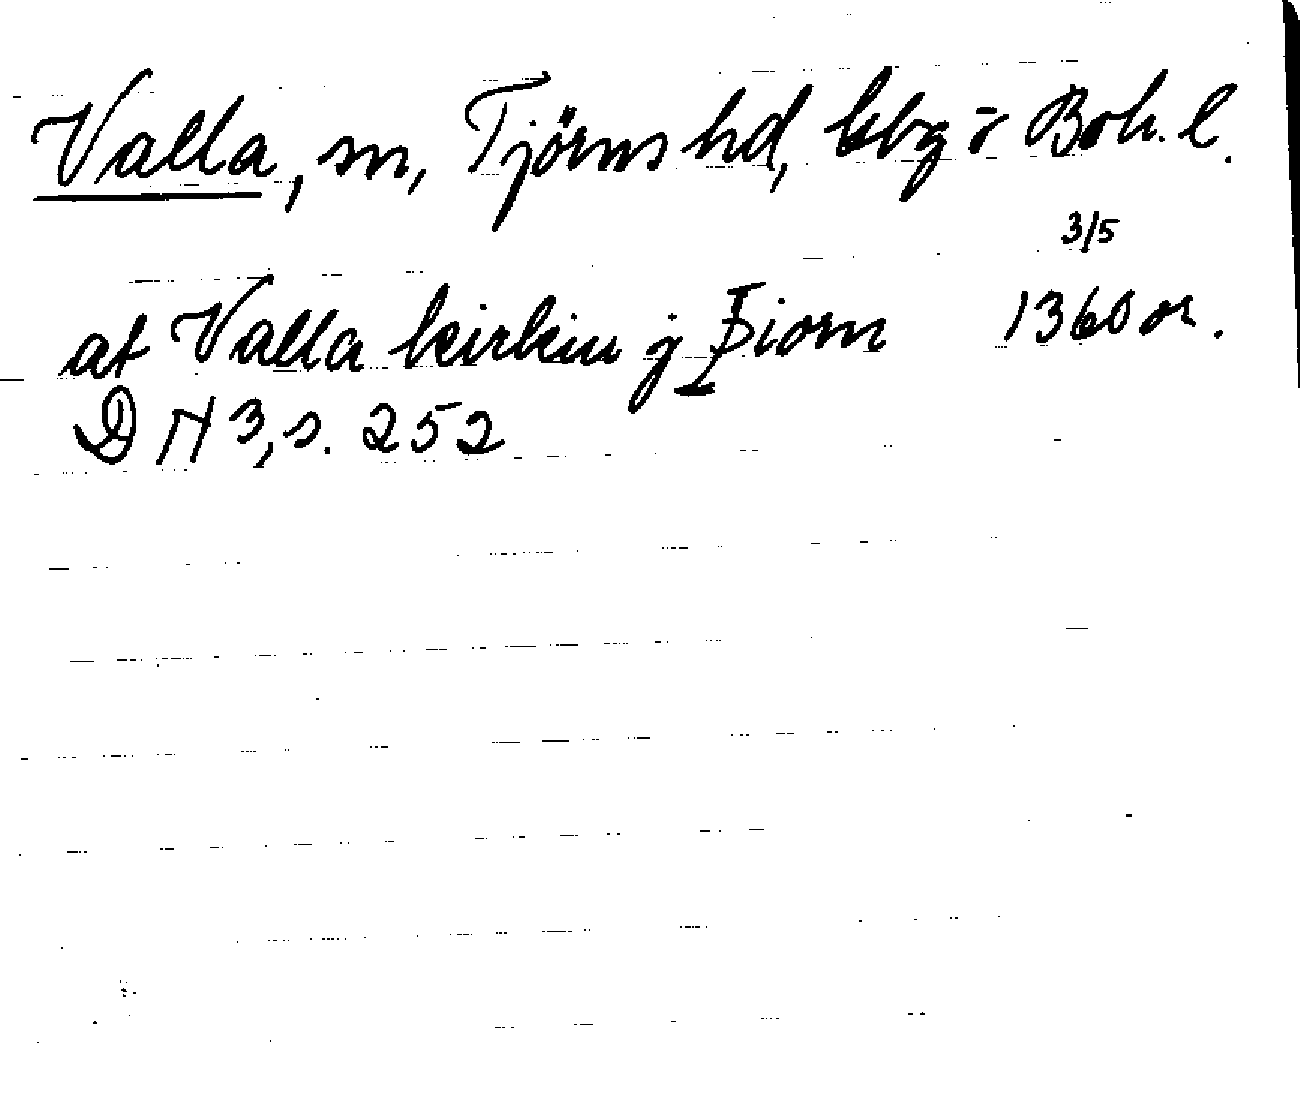 Valla, sn, Tjörns hd, kbg i Boh. l.
3/5
at Valla kirkiu j Þiorn 1360 or.
DN 3, s. 252